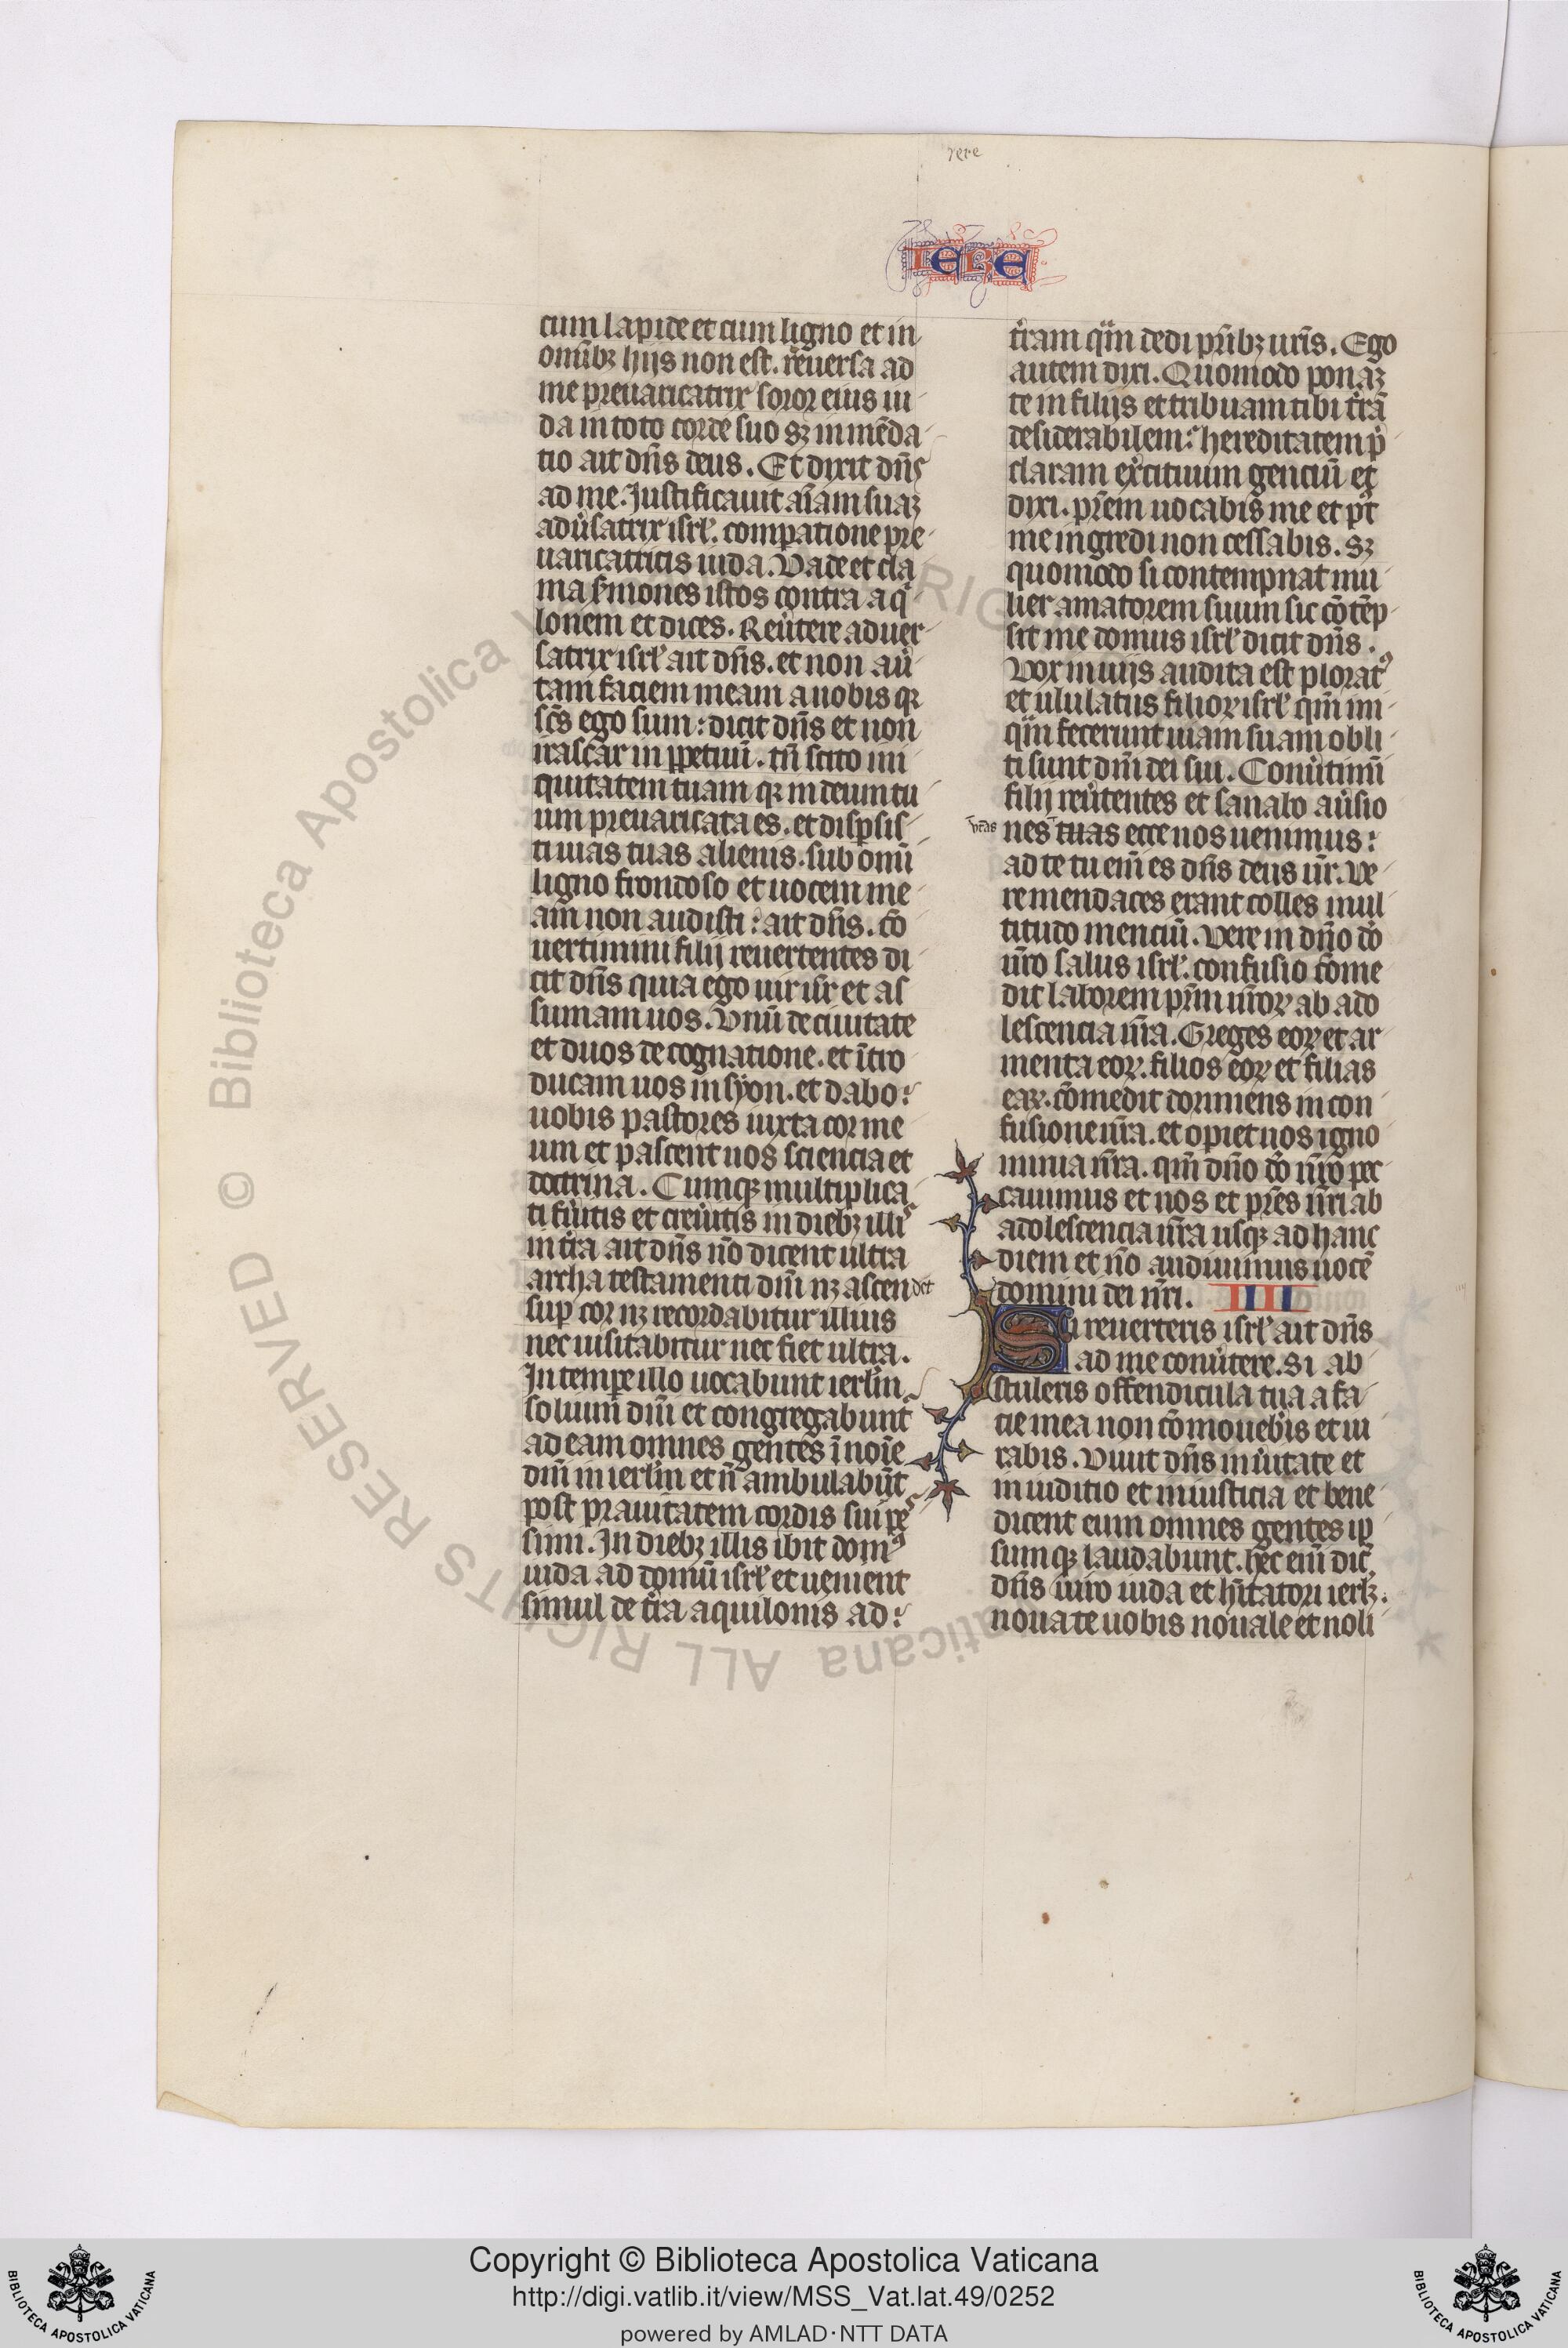 rere
IERE
cum lapide et cum ligno et in
omībꝫ hijs non est. reuersa ad
me preuaricatrix soror eius iu
da in toto corde suo sꝫ in mēda
tio ait dn̄s deus. Et dixit dn̄s
ad me. Justificauit aīam suaꝫ
adu͛satrix isrl̕. compatione pre
uaricatricis iuda. Vade et cla
ma s͛mones istos contra aqͥ
lonem et dices. Reu͛tere aduer
satrix isrl̕ ait dn̄s. et non au͛
tam faciem meam a uobis qꝛ
sc̄s ego sum: dicit dn̄s et non
irascar in ꝑpetuū. tn̄ scito ini
quitatem tuam qꝛ in deum tu
um preuaricata es. et disꝑsis
ti uias tuas alienis. sub omī
ligno frondoso et uocem me
am non audisti: ait dn̄s. cō
uertimini filij reuertentes di
cit dn̄s quia ego uir ur̄ et as
sumam uos. Vnū de ciuitate
et duos de cognatione. et ītro
ducam uos in syon. et dabo:
uobis pastores iuxta cor me
um et pascent uos sciencia et
doctrina. Cumqꝫ multiplica
ti fu͛itis et creu͛itis in diebꝫ illis
in t͛ra ait dn̄s nō dicent ultra
archa testamenti dn̄i nꝫ ascendet
suꝑ cor nꝫ recordabitur illius
nec uisitabitur nec fiet ultra.
In tempe illo uocabunt ierlm̄
solium dn̄i et congregabunt͛
ad eam omnes gentes ī noīe
dn̄i in ierlm̄ et n̄ ambulabūt
post prauitatem cordis sui pes
simi. In diebꝫ illis ibit domꝰ
iuda ad domū isrl̕ et uenient
simul de t͛ra aquilonis ad:
t͛ram qm̄ dedi pr̄ibꝫ ur̄is. Ego
autem dixi. Quomodo ponaꝫ
te in filijs et tribuam tibi t͛rā
desiderabilem: hereditatem p͛
claram ex͛cituum genciū et
dixi. pr̄em uocabis me et pt̕
me ingredi non cessabis. sꝫ
quomodo si contempnat mu
lier amatorem suum sic cōtēp
sit me domus isrl̕ dicit dn̄s.
Vox in uijs audita est ploratꝰ
et ululatus filioꝝ isrl̕ qm̄ ini
qm̄ fecerunt uiam suam obli
ti sunt dn̄i dei sui. Conu͛timī
filij reu͛tentes et sanabo au͛sio
ur̄as
nes tuas ecce nos uenimus:
ad te tu enī es dn̄s deus nr̄. Ve
re mendaces erant colles mul
titudo menciū. Vere in dn̄o dō
nr̄o salus isrl̕. confusio cōme
dit laborem prm̄ nr̄oꝝ ab ado
lescencia nr̄a. Greges eoꝝ et ar
menta eoꝝ. filios eoꝝ et filias
eaꝝ. cōmedit dormiens in con
fusione nr̄a. et opiet nos igno
minia nr̄a. qm̄ dn̄o dō nr̄o pec
cauimus et nos et pr̄es nr̄i ab
adolescencia nr̄a usqꝫ ad hanc
diem et nō audiuimus uocē
domini dei nr̄i. IIII
Si reuerteris isrl̕ ait dn̄s
ad me conu͛tere. Si ab
stuleris offendicula tua a fa
cie mea non cōmoueb͛is et iu
rabis. Viuit dn̄s in u͛itate et
in iuditio et in iusticia et bene
dicent eum omnes gentes ip̄
sumqꝫ laudabunt. hec enī dic̄
dn̄s uiro iuda et hītatori ierlꝫ.
nouate uobis nouale et noli
© Biblioteca Apostolica Vaticana ALL RIGHTS RESERVED
Copyright © Biblioteca Apostolica Vaticana
http://digi.vatlib.it/view/MSS_Vat.lat.49/0252
powered by AMLAD·NTT DATA
BIBLIOTECA APOSTOLICA VATICANA
BIBLIOTECA APOSTOLICA VATICANA